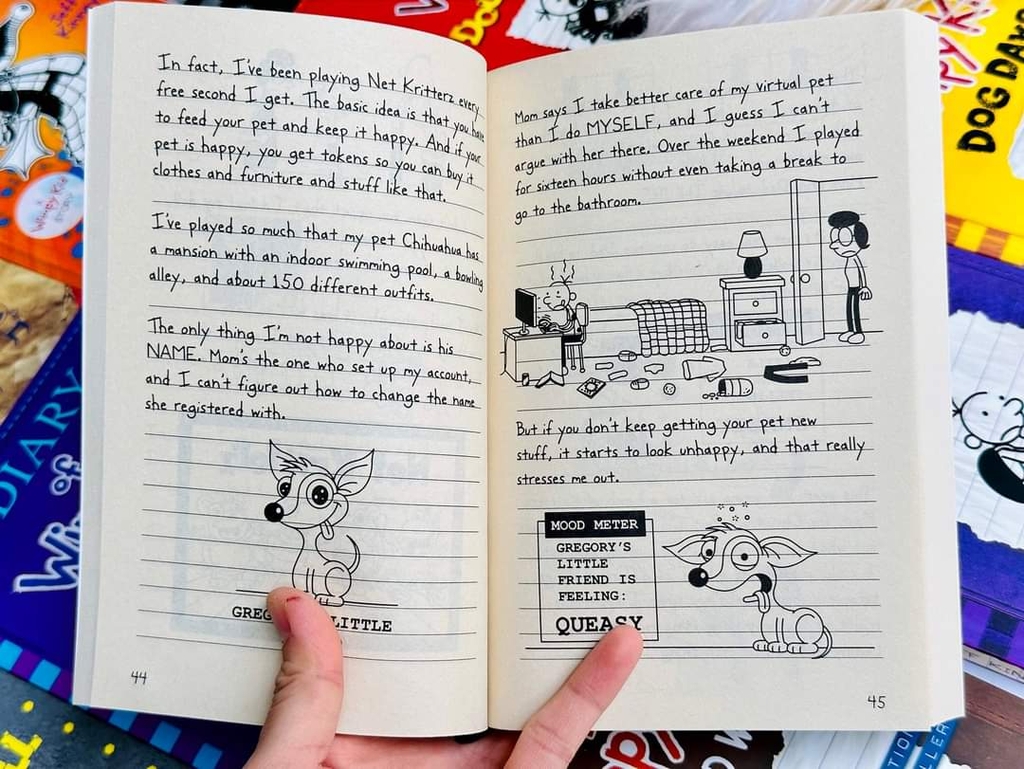 In fact, I've been playing Net Kritterz every
free second I get. The basic idea is that you have
to feed your pet and keep it happy. And if your
pet is happy, you get tokens so you can buy it
clothes and furniture and stuff like that.
I've played so much that my pet Chihuahua has
a mansion with an indoor swimming pool, a bowling
alley, and about 150 different outfits.
The only thing I'm not happy about is his
NAME. Mom's the one who set up my account,
and I can't figure out how to change the name
she registered with.
LITTLE
44
Mom says I take better care of my virtual pet
than I do MYSELF, and I guess I can't
argue with her there. Over the weekend I played
for sixteen hours without even taking a break to
go to the bathroom.
But if you don't keep getting your pet new
stuff, it starts to look unhappy, and that really
stresses me out.
MOOD METER
GREGORY'S
LITTLE
FRIEND IS
FEELING:
QUEASY
45
DOG DAYS
DIARY
of